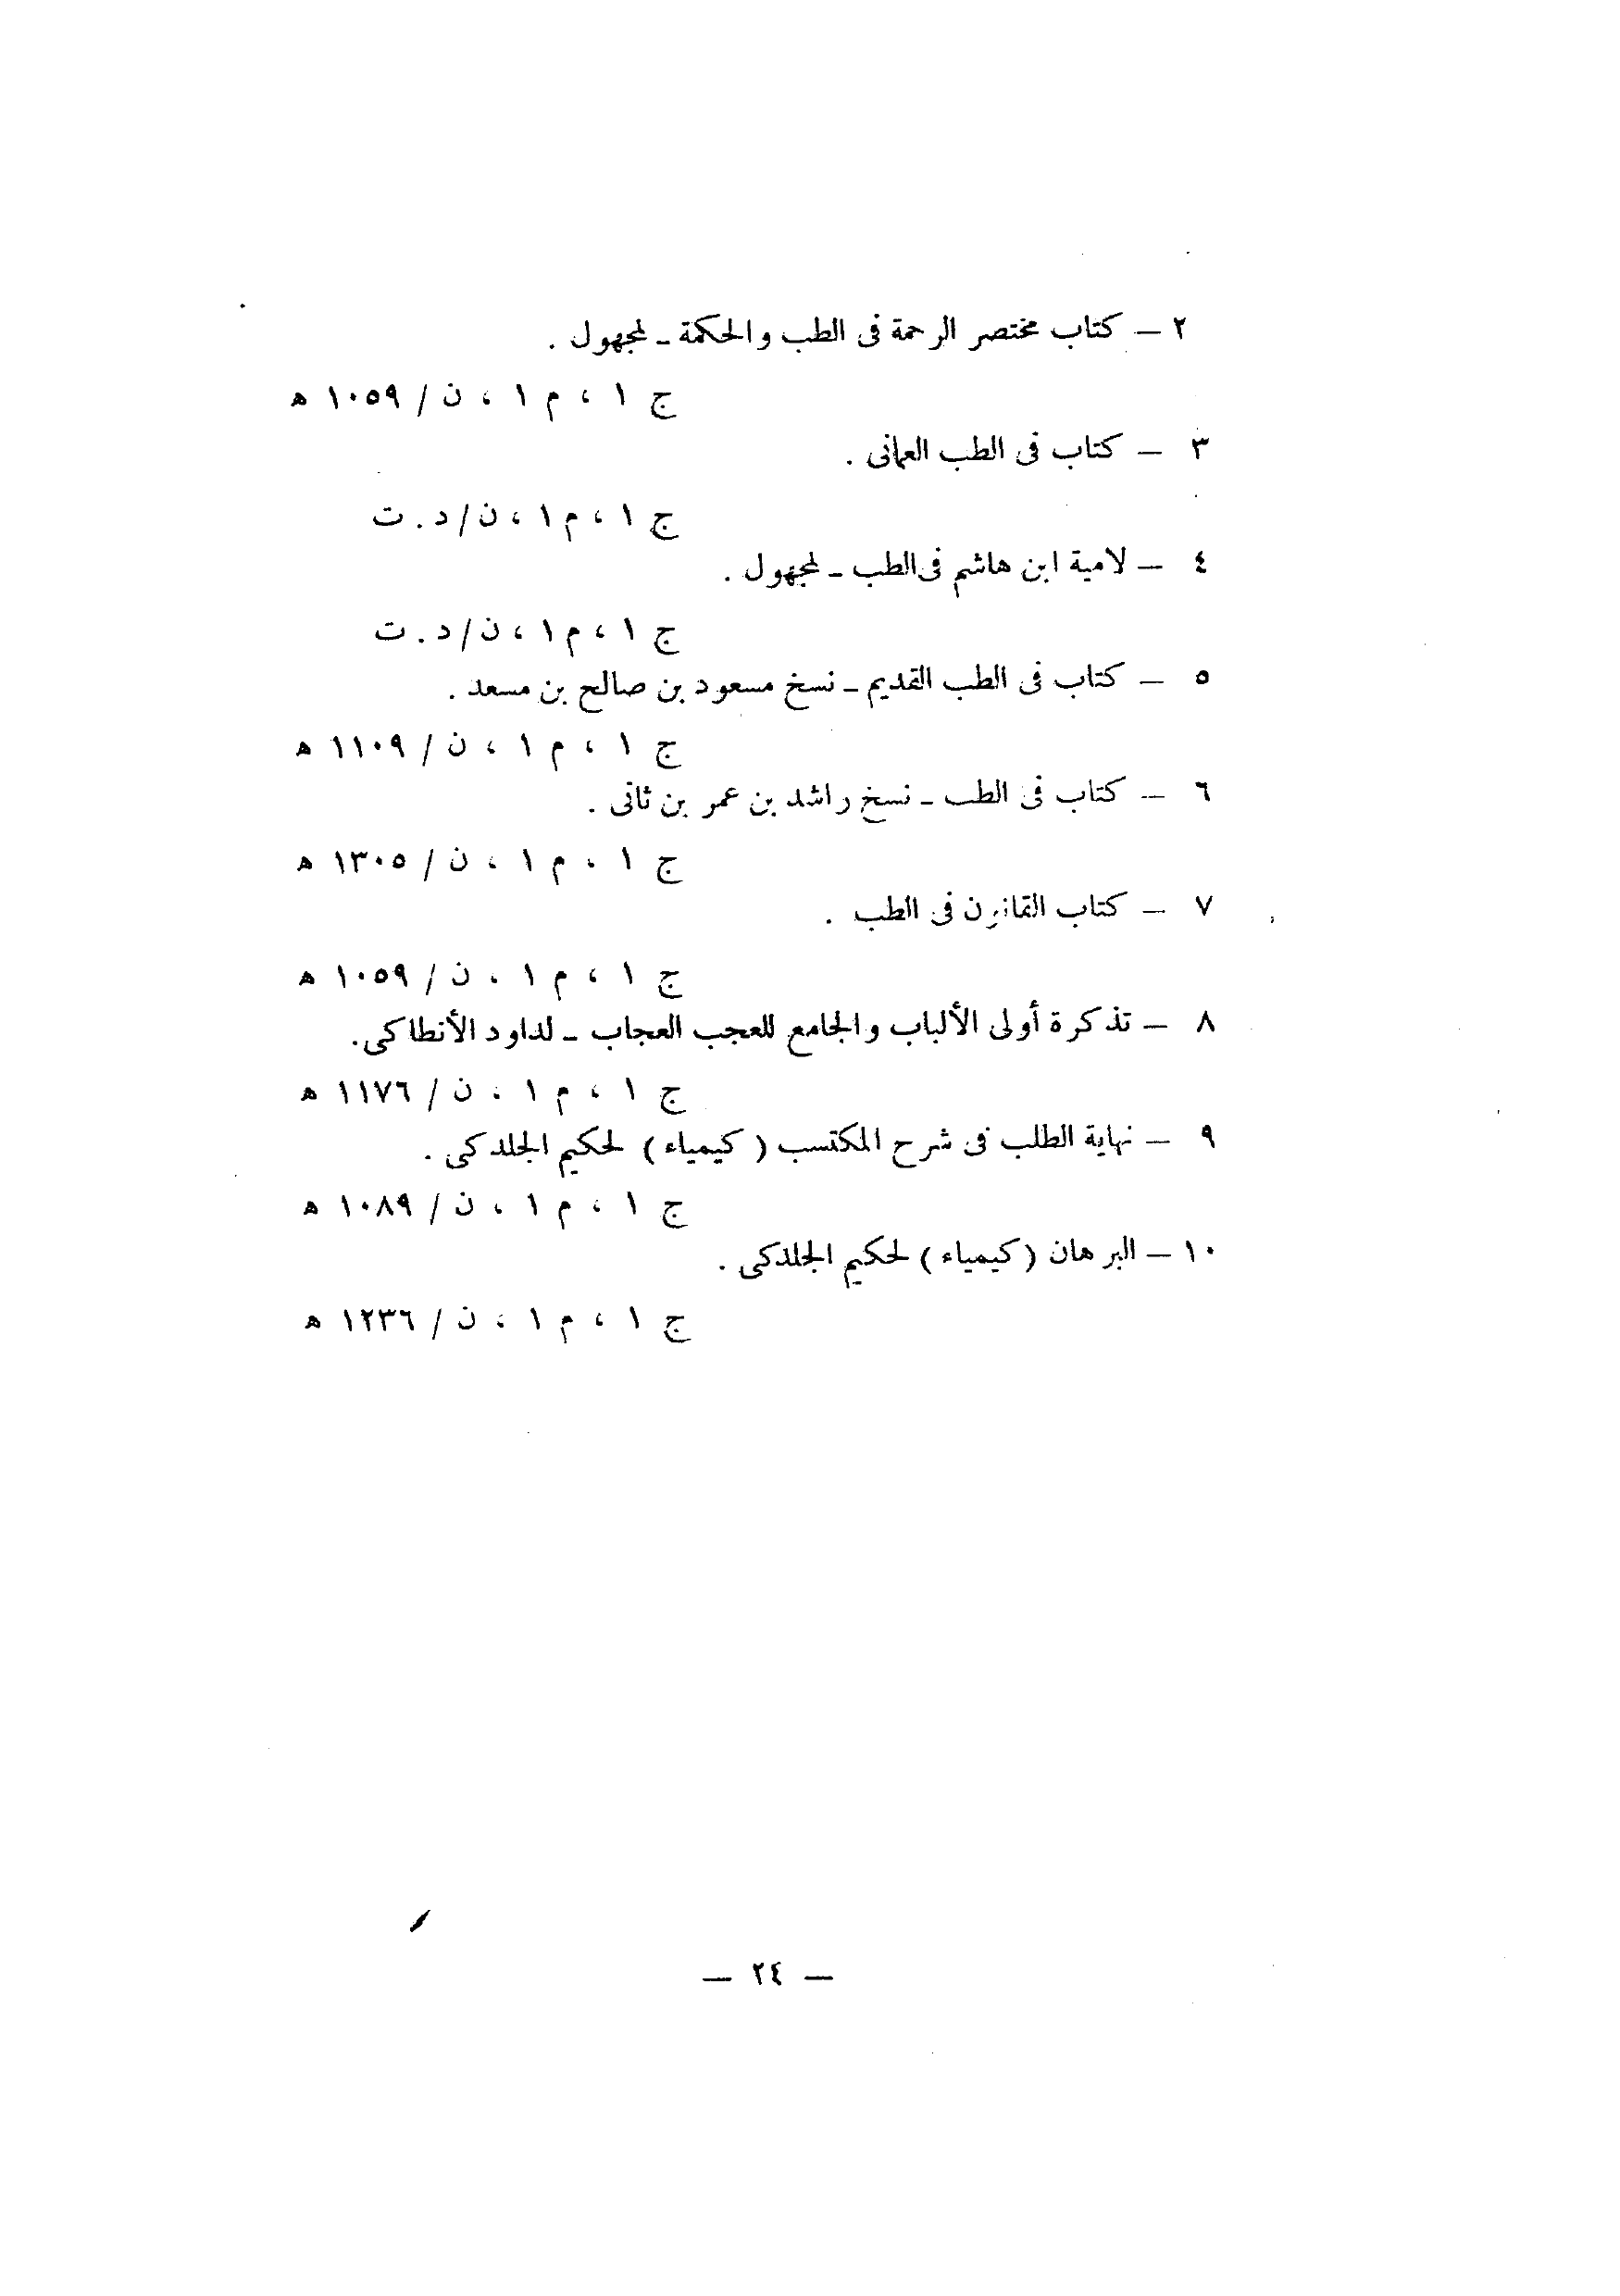 ٢ — كتاب مختصر الرحمة فى الطب والحكمة ـ لمجهول .
ج ١ ، م ١ ، ن / ١٠٥٩ ه
٣ — كتاب فى الطب العمانى .
ج ١ ، م ١ ، ن / د . ت
٤ — لامية ابن هاشم فى الطب ـ لمجهول .
ج ١ ، م ١ ، ن / د . ت
٥ — كتاب فى الطب القديم ـ نسخ مسعود بن صالح بن مسعد .
ج ١ ، م ١ ، ن / ١١٠٩ ه
٦ — كتاب فى الطب ـ نسخ راشد بن عمر بن ثانى .
ج ١ ، م ١ ، ن / ١٣٠٥ ه
٧ — كتاب القانون فى الطب .
ج ١ ، م ١ ، ن / ١٠٥٩ ه
٨ — تذكرة أولى الألباب والجامع للعجب العجاب ـ لداود الأنطاكى .
ج ١ ، م ١ ، ن / ١١٧٦ ه
٩ — نهاية الطلب فى شرح المكتسب ( كيمياء ) لحكيم الجلدكى .
ج ١ ، م ١ ، ن / ١٠٨٩ ه
١٠ — البرهان ( كيمياء ) لحكيم الجلدكى .
ج ١ ، م ١ ، ن / ١٢٣٦ ه
— ٢٤ —